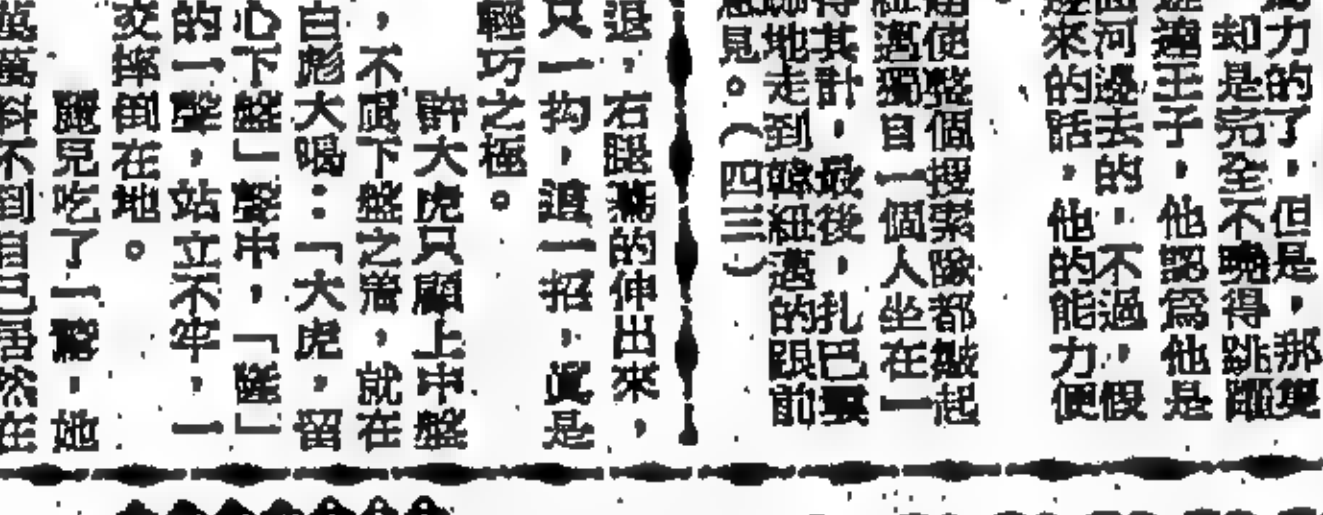 力的了，但是，那隻
却是完全不曉得跳躍
王子，他認爲他是
河邊去的，不過，假
來的話，他的能力便
使整個搜索隊都鼓起
獨自一個人坐在一
得其計，最後，扎巴要
地走到紐邁的跟前
見。（四三）
退，右腿的伸出來，
只一拘，這一招，眞是
輕巧之極。
許大虎只顧上中盤
，不防下盤之, 就在
白彪大喝：「大虎，留
心下盤」聲中，「隆」
的一聲，站立不牢，一
交摔倒在地。
麗兒吃了一驚，她
萬料不到自己居然在